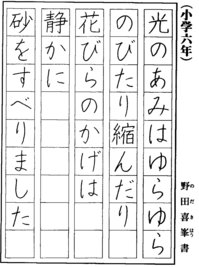 (小学六年)
光のあみはゆらゆら
のびたり縮んだり
花びらのかげは
静かに
砂をすべりました
野田喜峯書
のだきほう